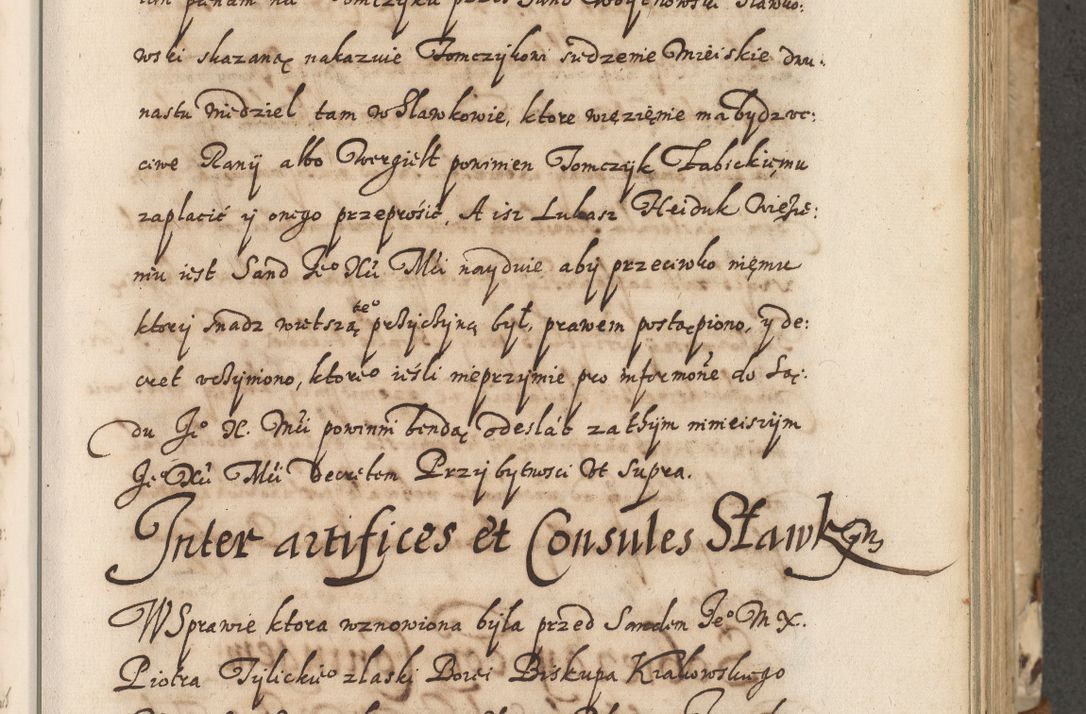 wski skazaną nakazuie Tomczykowi siedzenie Mieiskie dwu:
nastu Niedziel tam w Sławkowie, ktore więzięnie ma bydz uc:
ciwe Ranÿ albo Wergielt powinien Tomczÿk Łabęckięmu
zapłacić ÿ onego przeprosić, A isz Lukasz Heiduk Więzie:
niu iest Sand Jeo Xŭ Mŭi nayduie abÿ przeciwko nięmu
ktorÿ snadz wietszą teo prziczÿną bÿł, prawem postąpiono, y de:
cret vczÿniono, ktoreo ieśli nieprzÿmie pro informõne do Są:
du Jeo X. Mŭi powinni bendą odesłáć zathÿm ninieiszÿm
Jeo Xŭ Mŭi Decretem Przÿ bytnosci Vt supra.
Inter artifices et Consules Sławk
W Sprawie ktora wznowiona bÿła przed Sandem Jeo M X.
Piotra Tÿlickieo z łaski Bożei Biskupa Krakowskiego